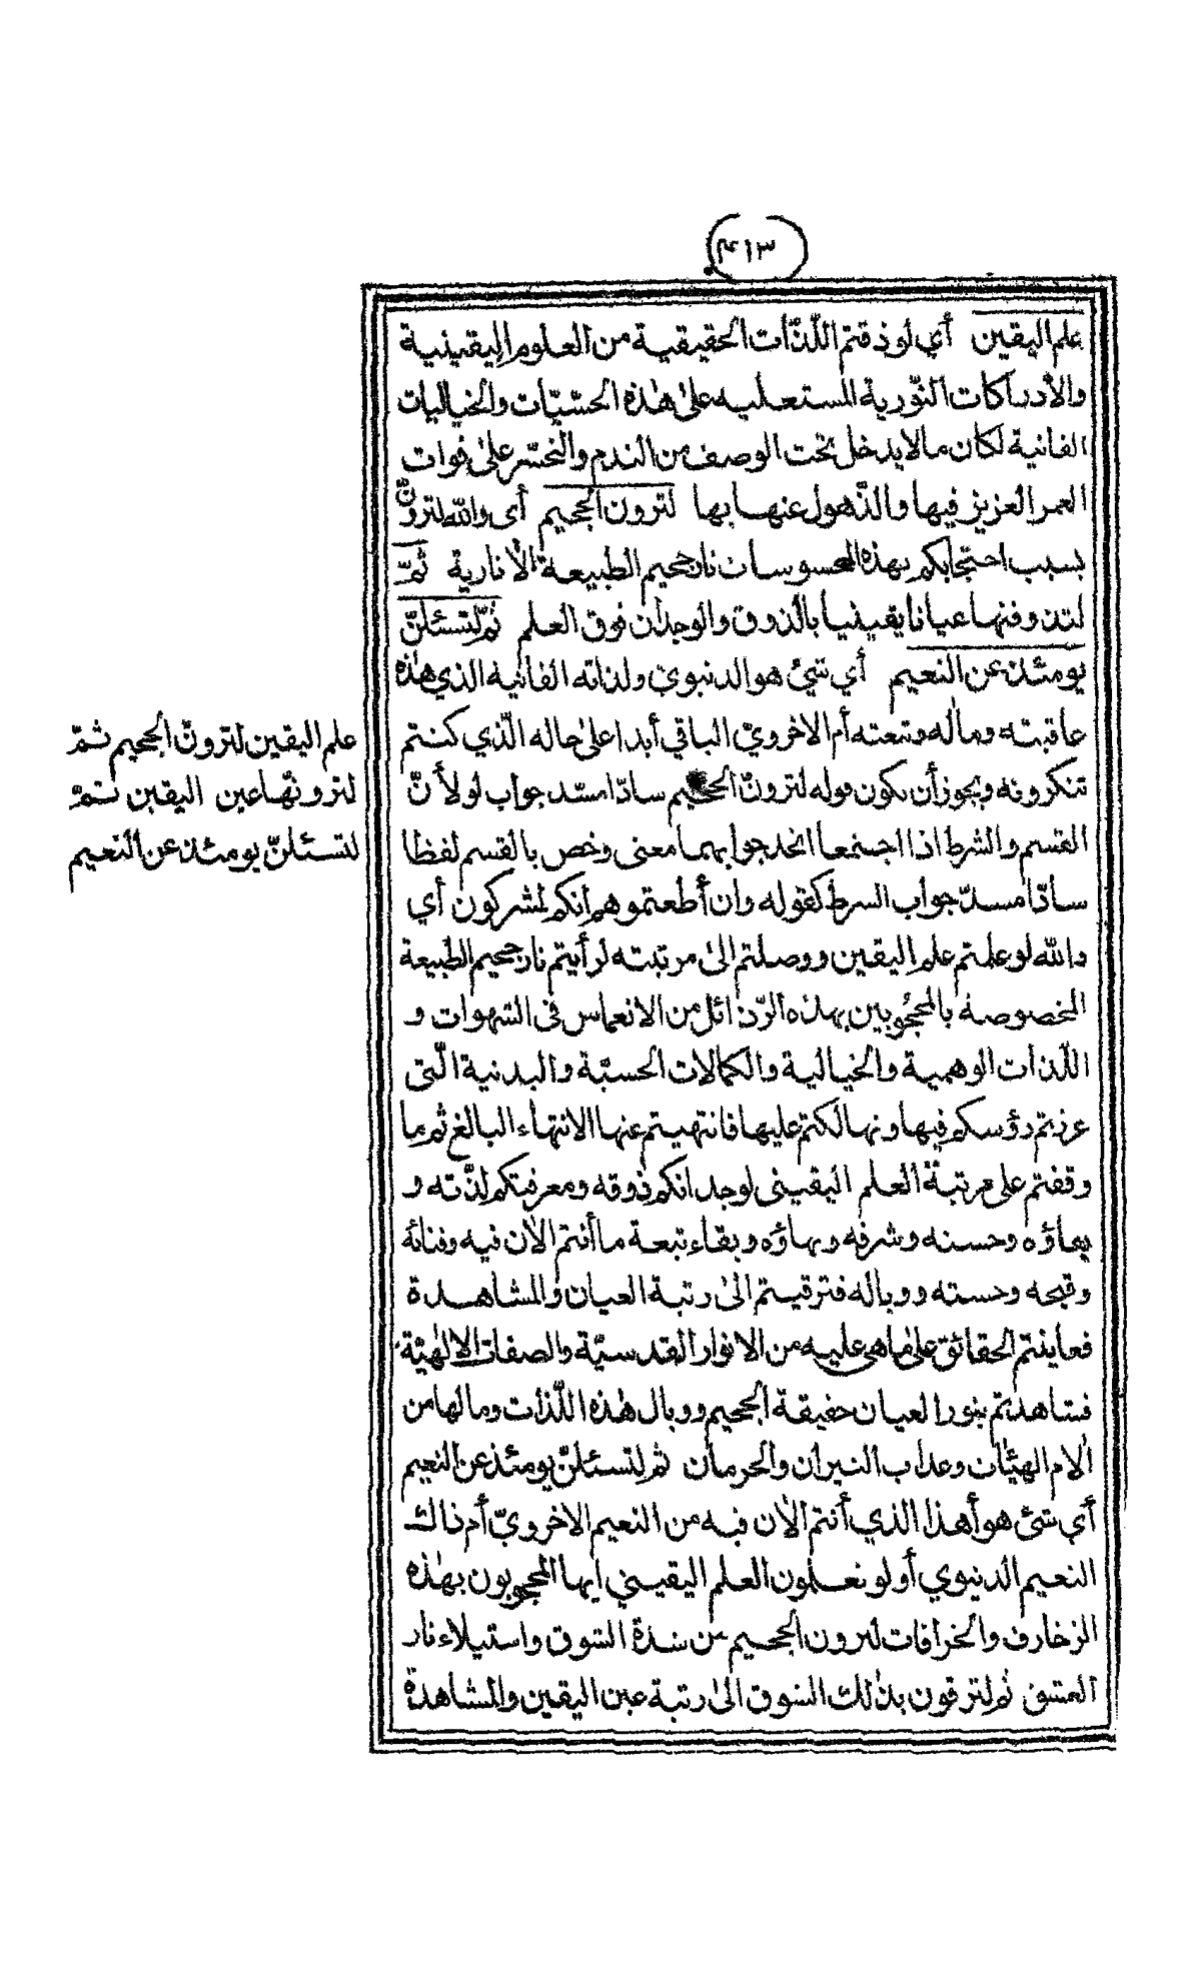 ٤١٣
علم اليقين أي لو ذقتم اللّذّات الحقيقية من العلوم اليقينية
والادراكات النّورية المستعليه على هذه الحسّيّات والخياليات
الفانية لكان مالا يدخل تحت الوصف من الندم والتحسّر على فوات
العمر العزيز فيها والذّهول عنها بها لترون الجحيم أى والله لترونّ
بسبب احتجابكم بهذه المحسوسات نار جحيم الطبيعة الأثارية ثمّ
لتذوقنها عيانا يقينيا بالذوق والوجدان فوق العلم ثمّ لتسئلنّ
يومئذ عن النعيم أي شئ هو الدنيوىّ ولذاته الفانيه الذي هذه
عاقبته ومآله وتبعته أم الاخرويّ الباقي أبدا على حاله الّذي كنتم
تنكرونه ويجوز أن يكون قوله لترونّ الجحيم سادّا مسّد جواب لو لأنّ
القسم والشرط اذا اجتمعا اتحد جوابهما معنى وخص بالقسم لفظا
سادّا مسدّ جواب الشرط كقوله وان أطعتموهم انكم لمشركون أي
والله لو علمتم علم اليقين ووصلتم الى مرتبته لرأيتم نار جحيم الطبيعة
المخصوصة بالمحجوبين بهذه الرّذائل من الانغماس فى الشهوات و
اللّذات الوهمية والخيالية والكمالات الحسيّة والبدنية الّتى
غرزتم رؤسكم فيها وتهالكتم عليها فانتهيتم عنها الانتهاء البالغ ثم ما
وقفتم على مرتبة العلم اليقينى لوجدانكم ذوقه ومعرفتكم لذّته و
بهاؤه وحسنه وشرفه وبهاؤه وبقاء تبعة ما أنتم الآن فيه وفنائه
وقبحه وخسته ووباله فترقيتم الى رتبة العيان والمشاهدة
فعاينتم الحقائق على ماهى عليه من الانوار القدسيّة والصفات الالٰهيّة
فشاهدتم بنور العيان حقيقة الجحيم ووبال هذه اللّذات ومالها من
آلام الهيئات وعذاب النيران والحرمان ثم لتسئلنّ يومئذ عن النعيم
أي شئ هو أهذا الذي أنتم الآن فيه من النعيم الاخرويّ أم ذاك
النعيم الدنيوي أو لو تعلمون العلم اليقيني ايها المحجوبون بهذه
الزخارف والخرافات لترون الجحيم من شدة الشوق واستيلاء نار
العشق ثم لترقون بذلك الشوق الى رتبة عين اليقين والمشاهدة
علم اليقين لترونّ الجحيم ثمّ
لترونّها عين اليقين ثمّ
لتسئلنّ يومئذ عن النعيم